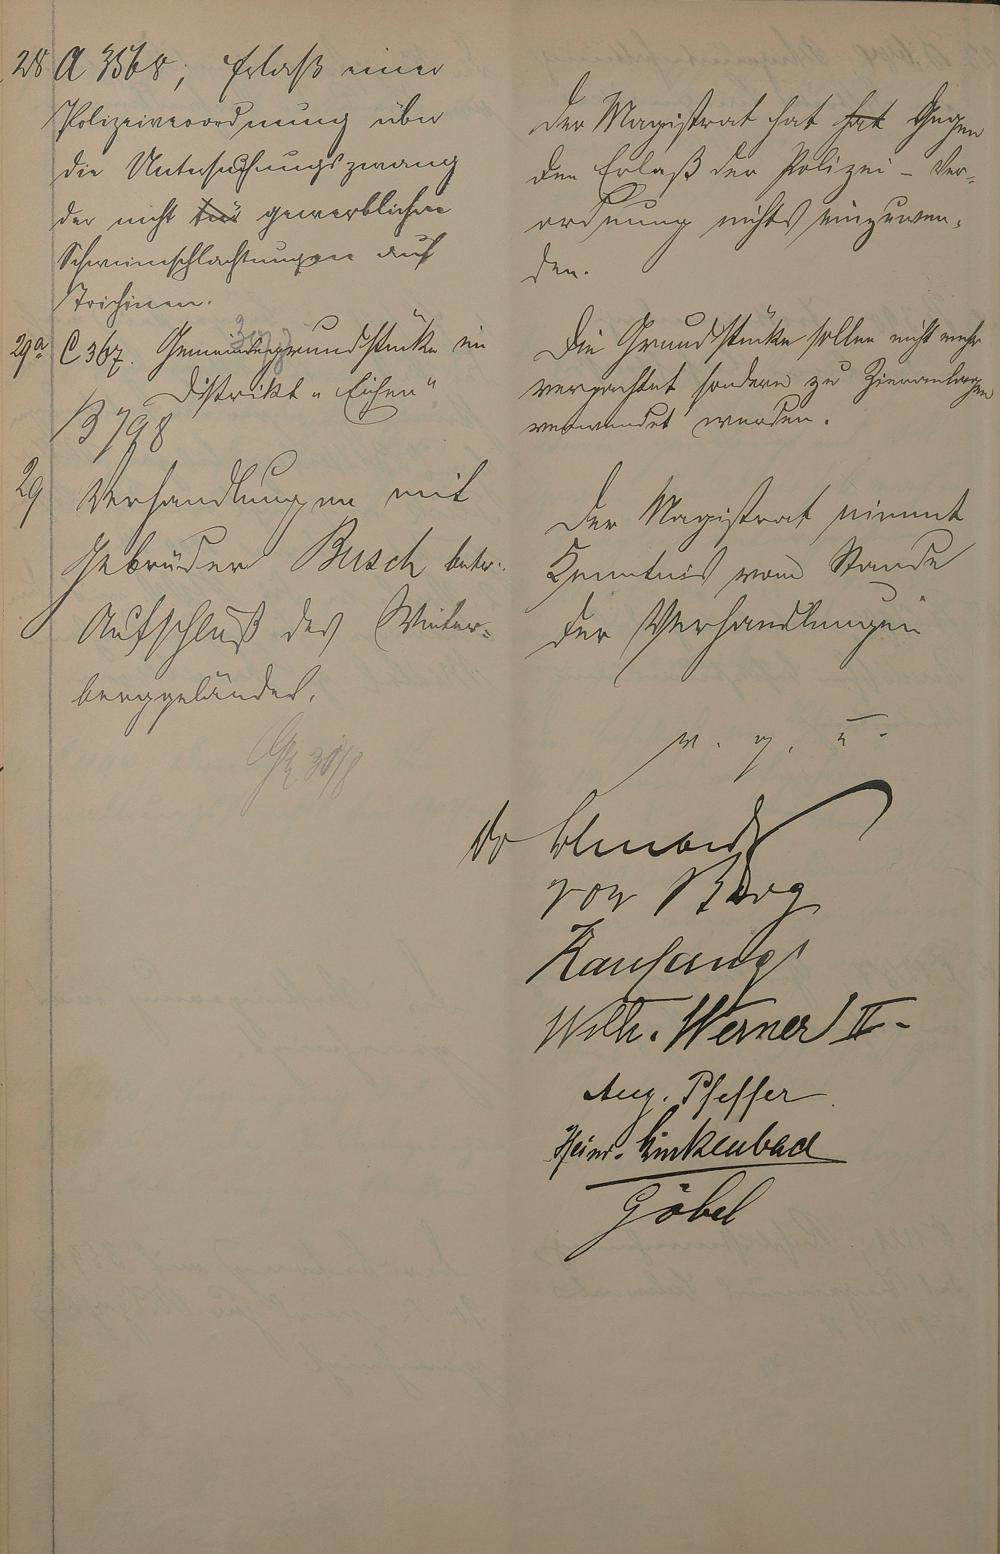 28 A 3568, Erlaß einer
Polizeiverordnung über
die Untersuchungszwang
der nicht für gewerblichen
Schweinschlachtungen auf
Trichinen.
Der Magistrat hat hat Gegen
den Erlaß der Polizei-Ver-
ordnung nichts einzuwen-
den.
29a C 367. Gemeindegrundstücke im
Distrikt "Eichen"
B 798
Die Grundstücke sollen nicht mehr
verpachtet sondern zu Zieranlagen
verwendet werden.
29 Verhandlungen mit
Gebrüder Busch betr.
Aufschluß des Winter-
berggeländes.
Der Magistrat nimmt
Kenntnis vom Stande
der Verhandlungen
v. g. u.
von Berg
Kaufang
Wilh. Werner II-
Aug. Pfeffer
Heinr. Linkenbach
Göbel